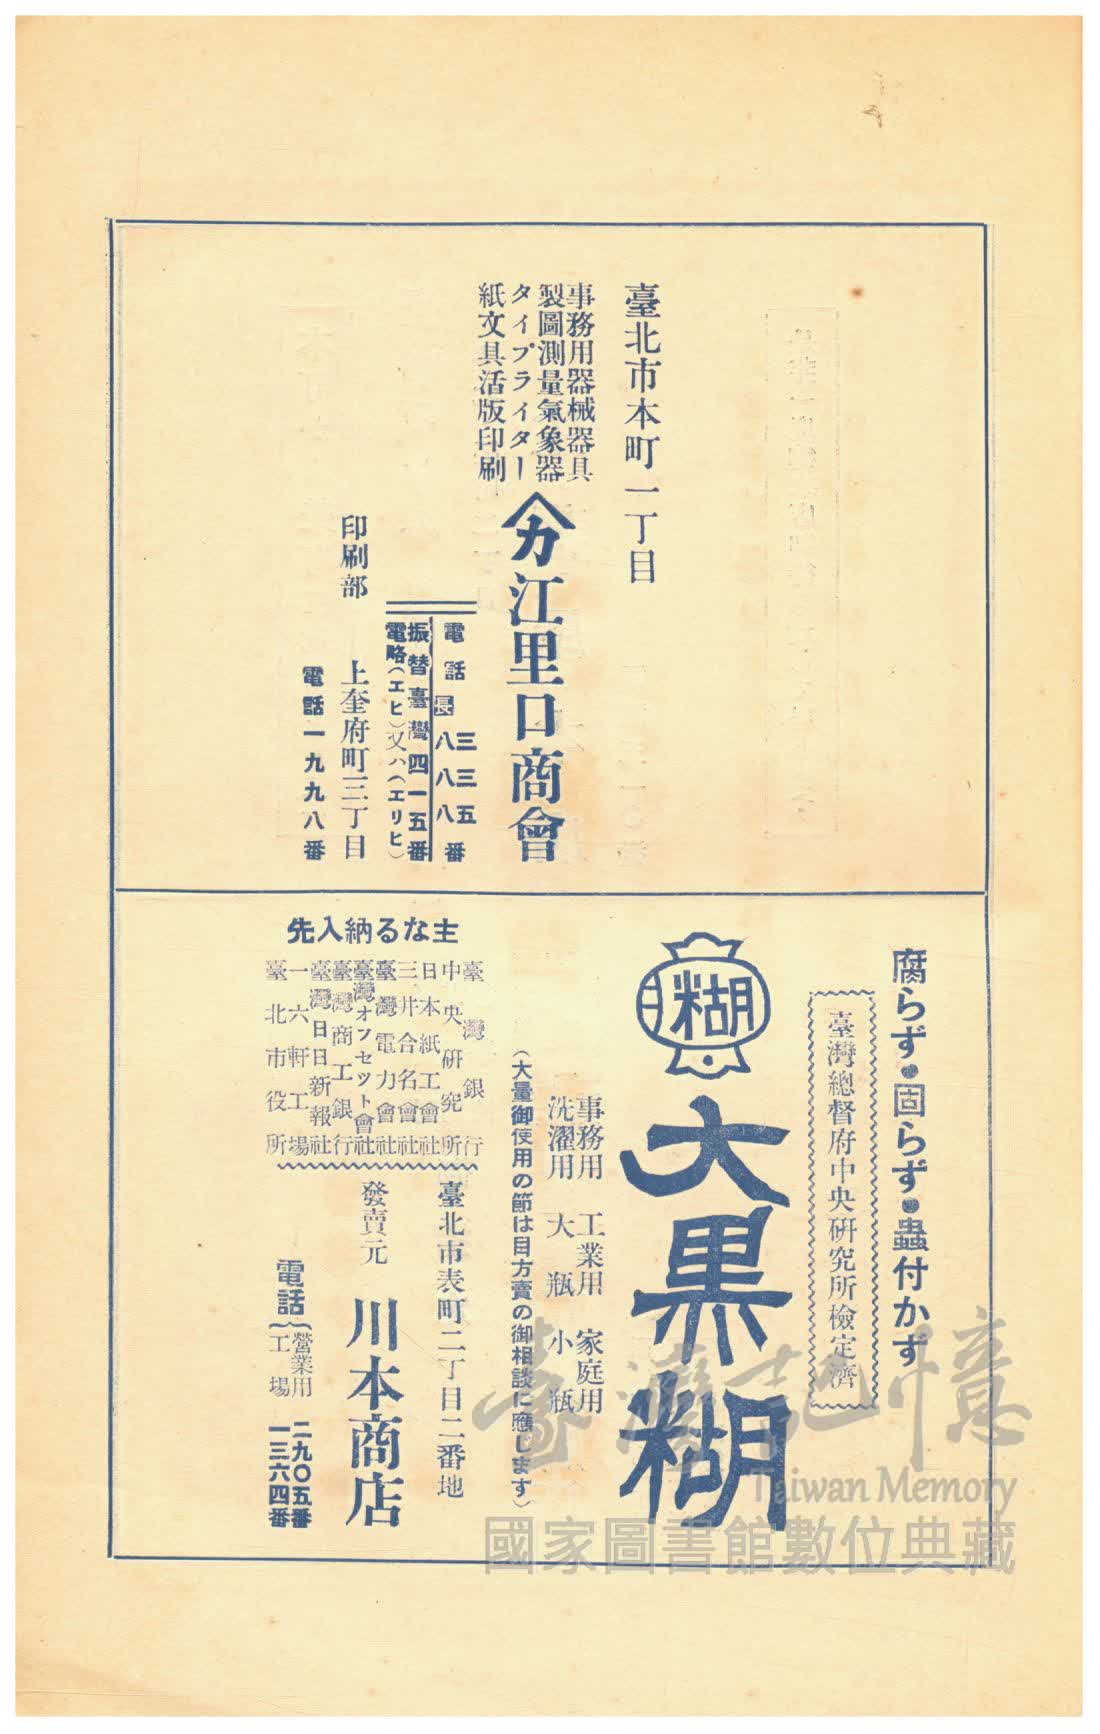 臺北市本町一丁目
事務用器械器具
製圖測量氣象器
タイプライター
紙文具活版印刷
カ江里口商會
電話 三三五番
長 八八八番
振替臺灣四一五番
電略(エヒ)又ハ(エリヒ)
印刷部 上奎府町三丁目
電話一九九八番
腐らず・固らず・蟲付かず
臺灣總督府中央研究所檢定濟
糊
大黒糊
事務用 工業用 家庭用
洗濯用 大瓶 小瓶
(大量御使用の節は目方賣の御相談に應します)
主なる納入先
臺灣銀行
中央研究所
日本紙工會社
三井合名會社
臺灣電力會社
臺灣オフセツト會社
臺灣商工銀行
臺灣日日新報社
一六軒工場
臺北市役所
臺北市表町二丁目二番地
發賣元 川本商店
電話
營業用 二九〇五番
工場 一三六四番
臺灣記憶
Taiwan Memory
國家圖書館數位典藏